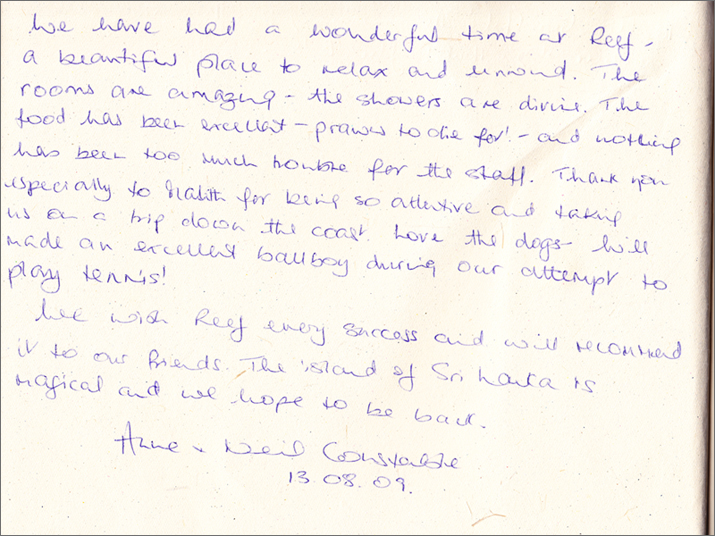 We have had a wonderful time at Reef -
a beautiful place to relax and unwind. The
rooms are amazing - the showers are divine. The
food has been excellent - prawns to die for! - and nothing
has been too much trouble for the staff. Thank you
especially to for being so attentive and taking
us on a trip down the coast. Love the dogs - Will
made an excellent ballboy during our attempt to
play tennis!
We wish Reef every success and will recommend
it to our friends. The island of Sri Lanka is
magical and we hope to be back.
Anne + Neil Constable
13.08.09.